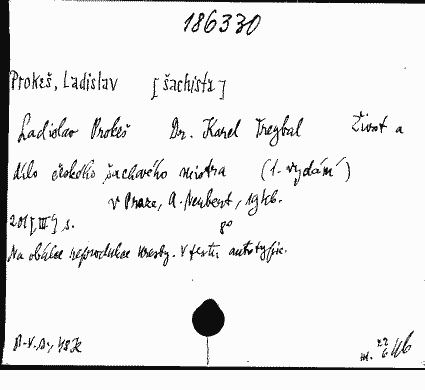 186330
Prokeš, Ladislav [šachista]
Ladislav Prokeš Dr. Karel Treybal Život a
dílo českého šachového mistra (1. vydání)
v Praze, A. Neubert, 1946.
8°
Na obálce reprodukce kresby. V textu autotypie.